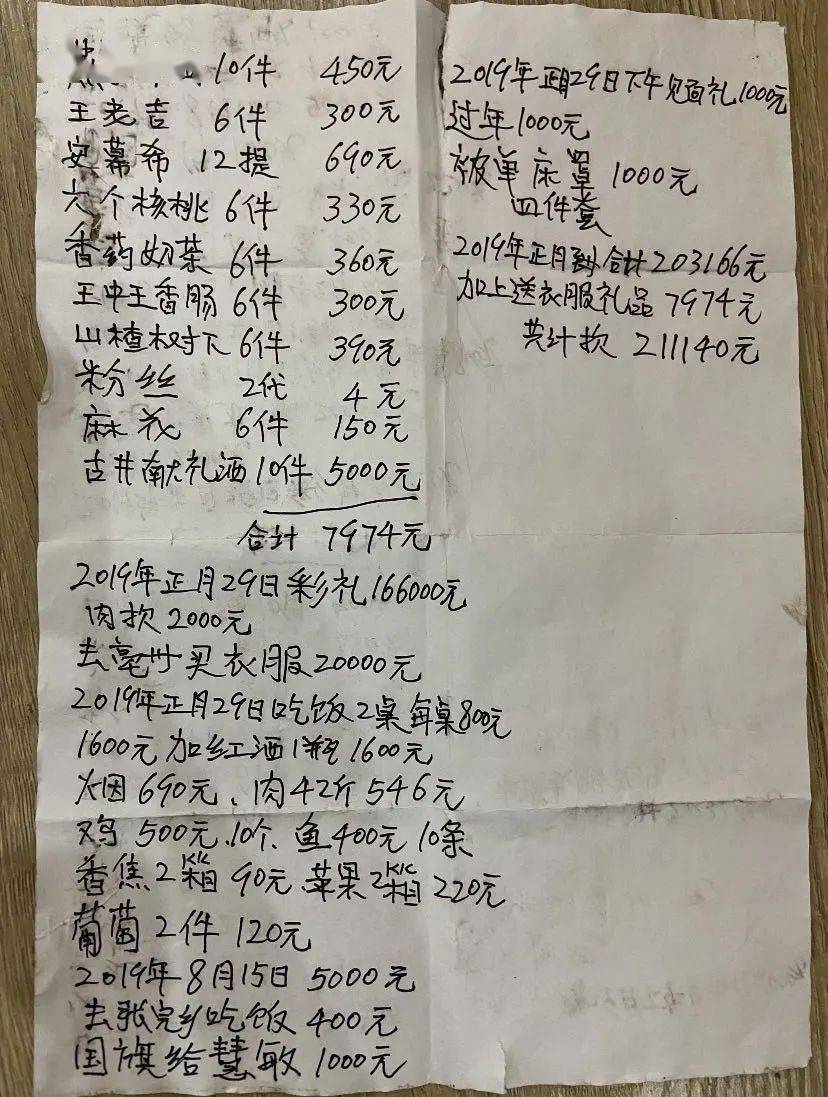 10件 450元
王老吉 6件 300元
安幕希 12提 690元
六个核桃 6件 330元
香药奶茶 6件 360元
王中王香肠 6件 300元
山楂树下 6件 390元
粉丝 2代 4元
麻花 6件 150元
古井献礼酒 10件 5000元
合计 7974元
2019年正月29日彩礼166000元
肉款2000元
去亳州买衣服20000元
2019年正月29日吃饭2桌每桌800元
1600元加红酒1瓶1600元
烟690元、肉42斤546元
鸡500元、10个、鱼400元10条
香焦2箱90元、苹果2箱220元
葡萄2件120元
2019年8月15日5000元
去张完乡吃饭400元
国旗给慧敏1000元
2019年正月29日下午见面礼1000元
过年1000元
被单床罩1000元
四件套
2019年正月到合计203166元
加上送衣服礼品7974元
共计款211140元